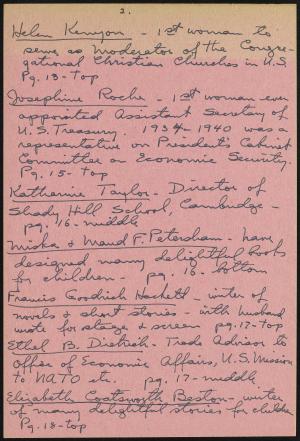 2.
Helen Kenyon - 1st woman to
serve as Moderator of the Congre-
gational Christian Churches in U.S.
Pg. 13 - top
Josephine Roche - 1st woman ever
appointed Assistant Secretary of
U.S. Treasury. 1934-1940 was a
representative on President's Cabinet
Committee on Economic Security.
Pg. 15 - top
Katharine Taylor - Director of
Shady Hill School, Cambridge -
pg. 16 - middle
Miska & Maud F. Petersham - have
designed many delightful books
for children - pg. 16 - bottom
Francis Goodrich Hackett - writer of
novels & short stories - with husband
wrote for stage & screen pg. 17 - top
Ethel B. Dietrich - Trade Advisor to
Office of Economic Affairs, U.S. Mission
to NATO etc. pg. 17 - middle
Elizabeth Coatsworth Beston - writer
of many delightful stories for children
Pg. 18 - top